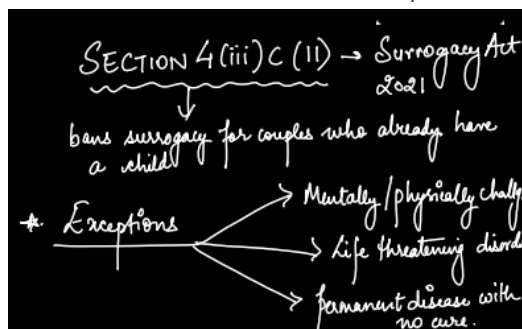 SECTION 4(iii) C (II) → Surrogacy Act
2021
bans surrogacy for couples who already have
a child
* Exceptions
→ Mentally/physically challe
→ Life threatening disord
→ permanent disease with
no cure.